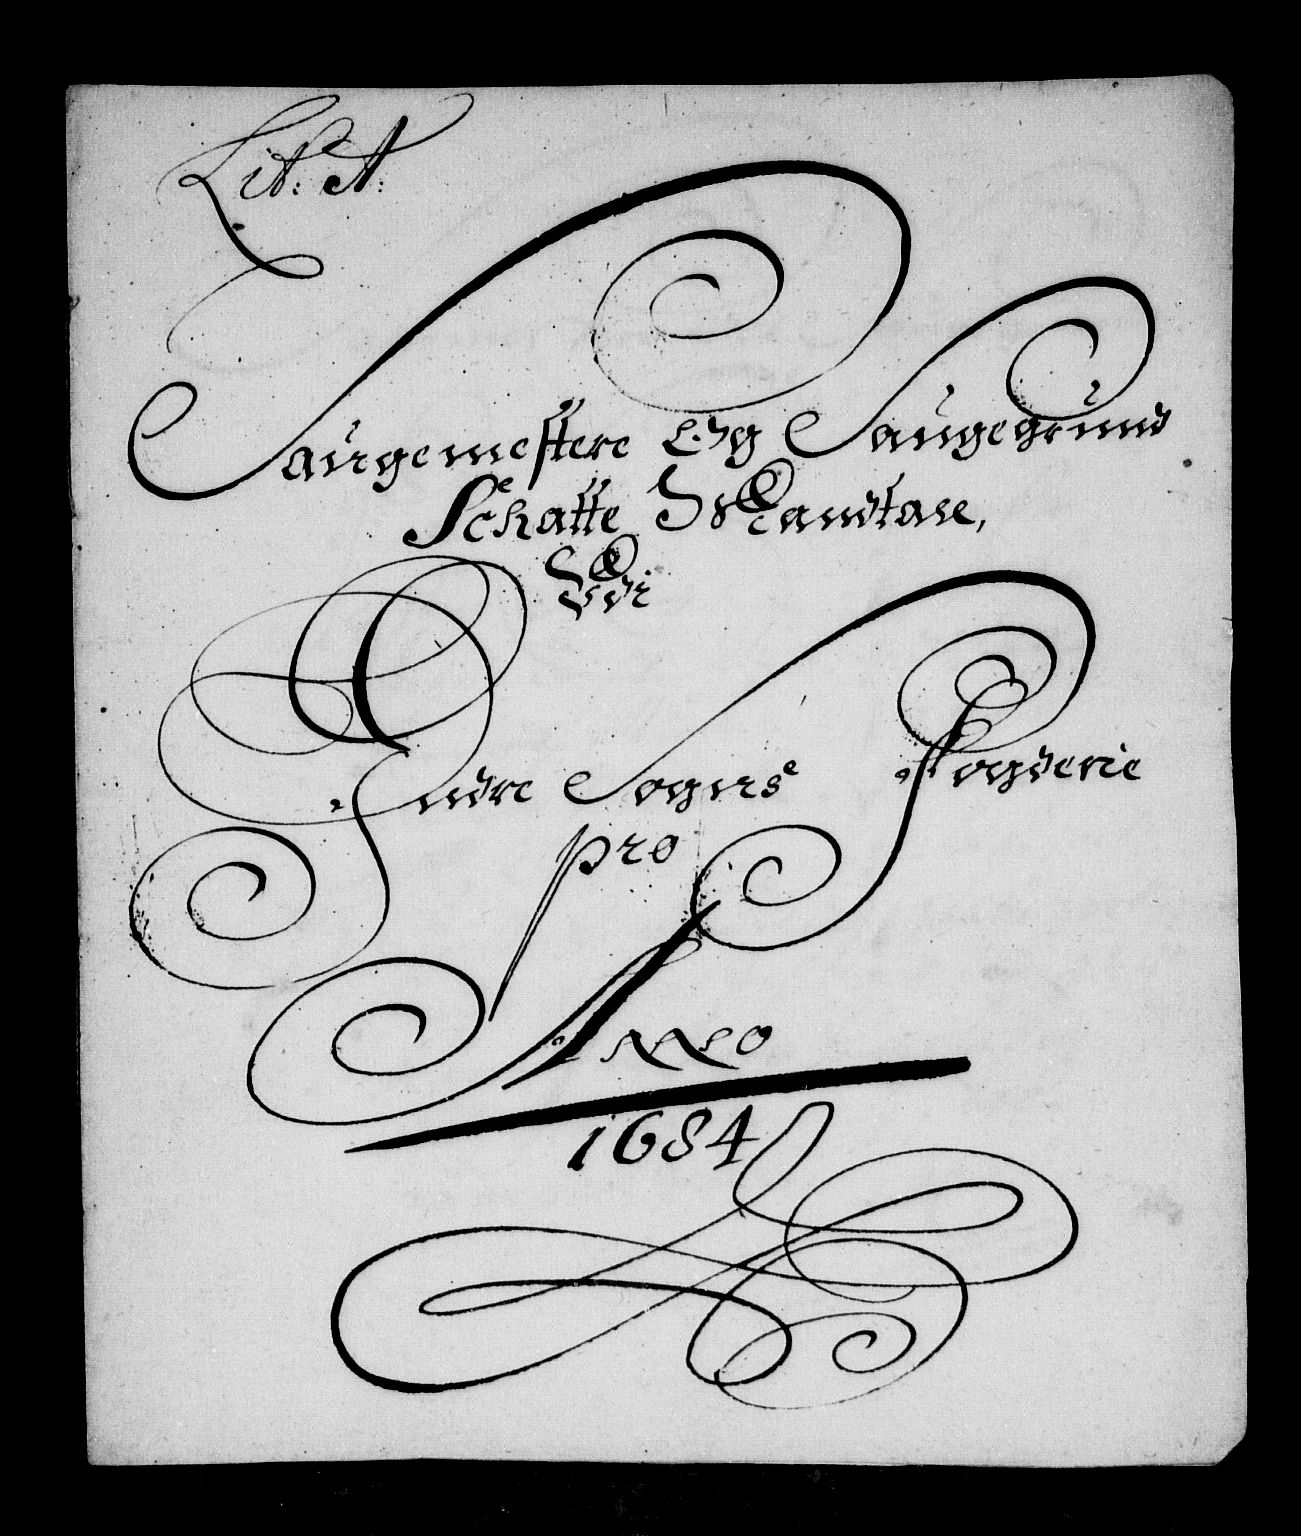 Lit: A:
Saugemestere Og Saugegrund
Schatte Mandtall,
Udi
Indre Sogns Fogderie
pro
Anno
1684